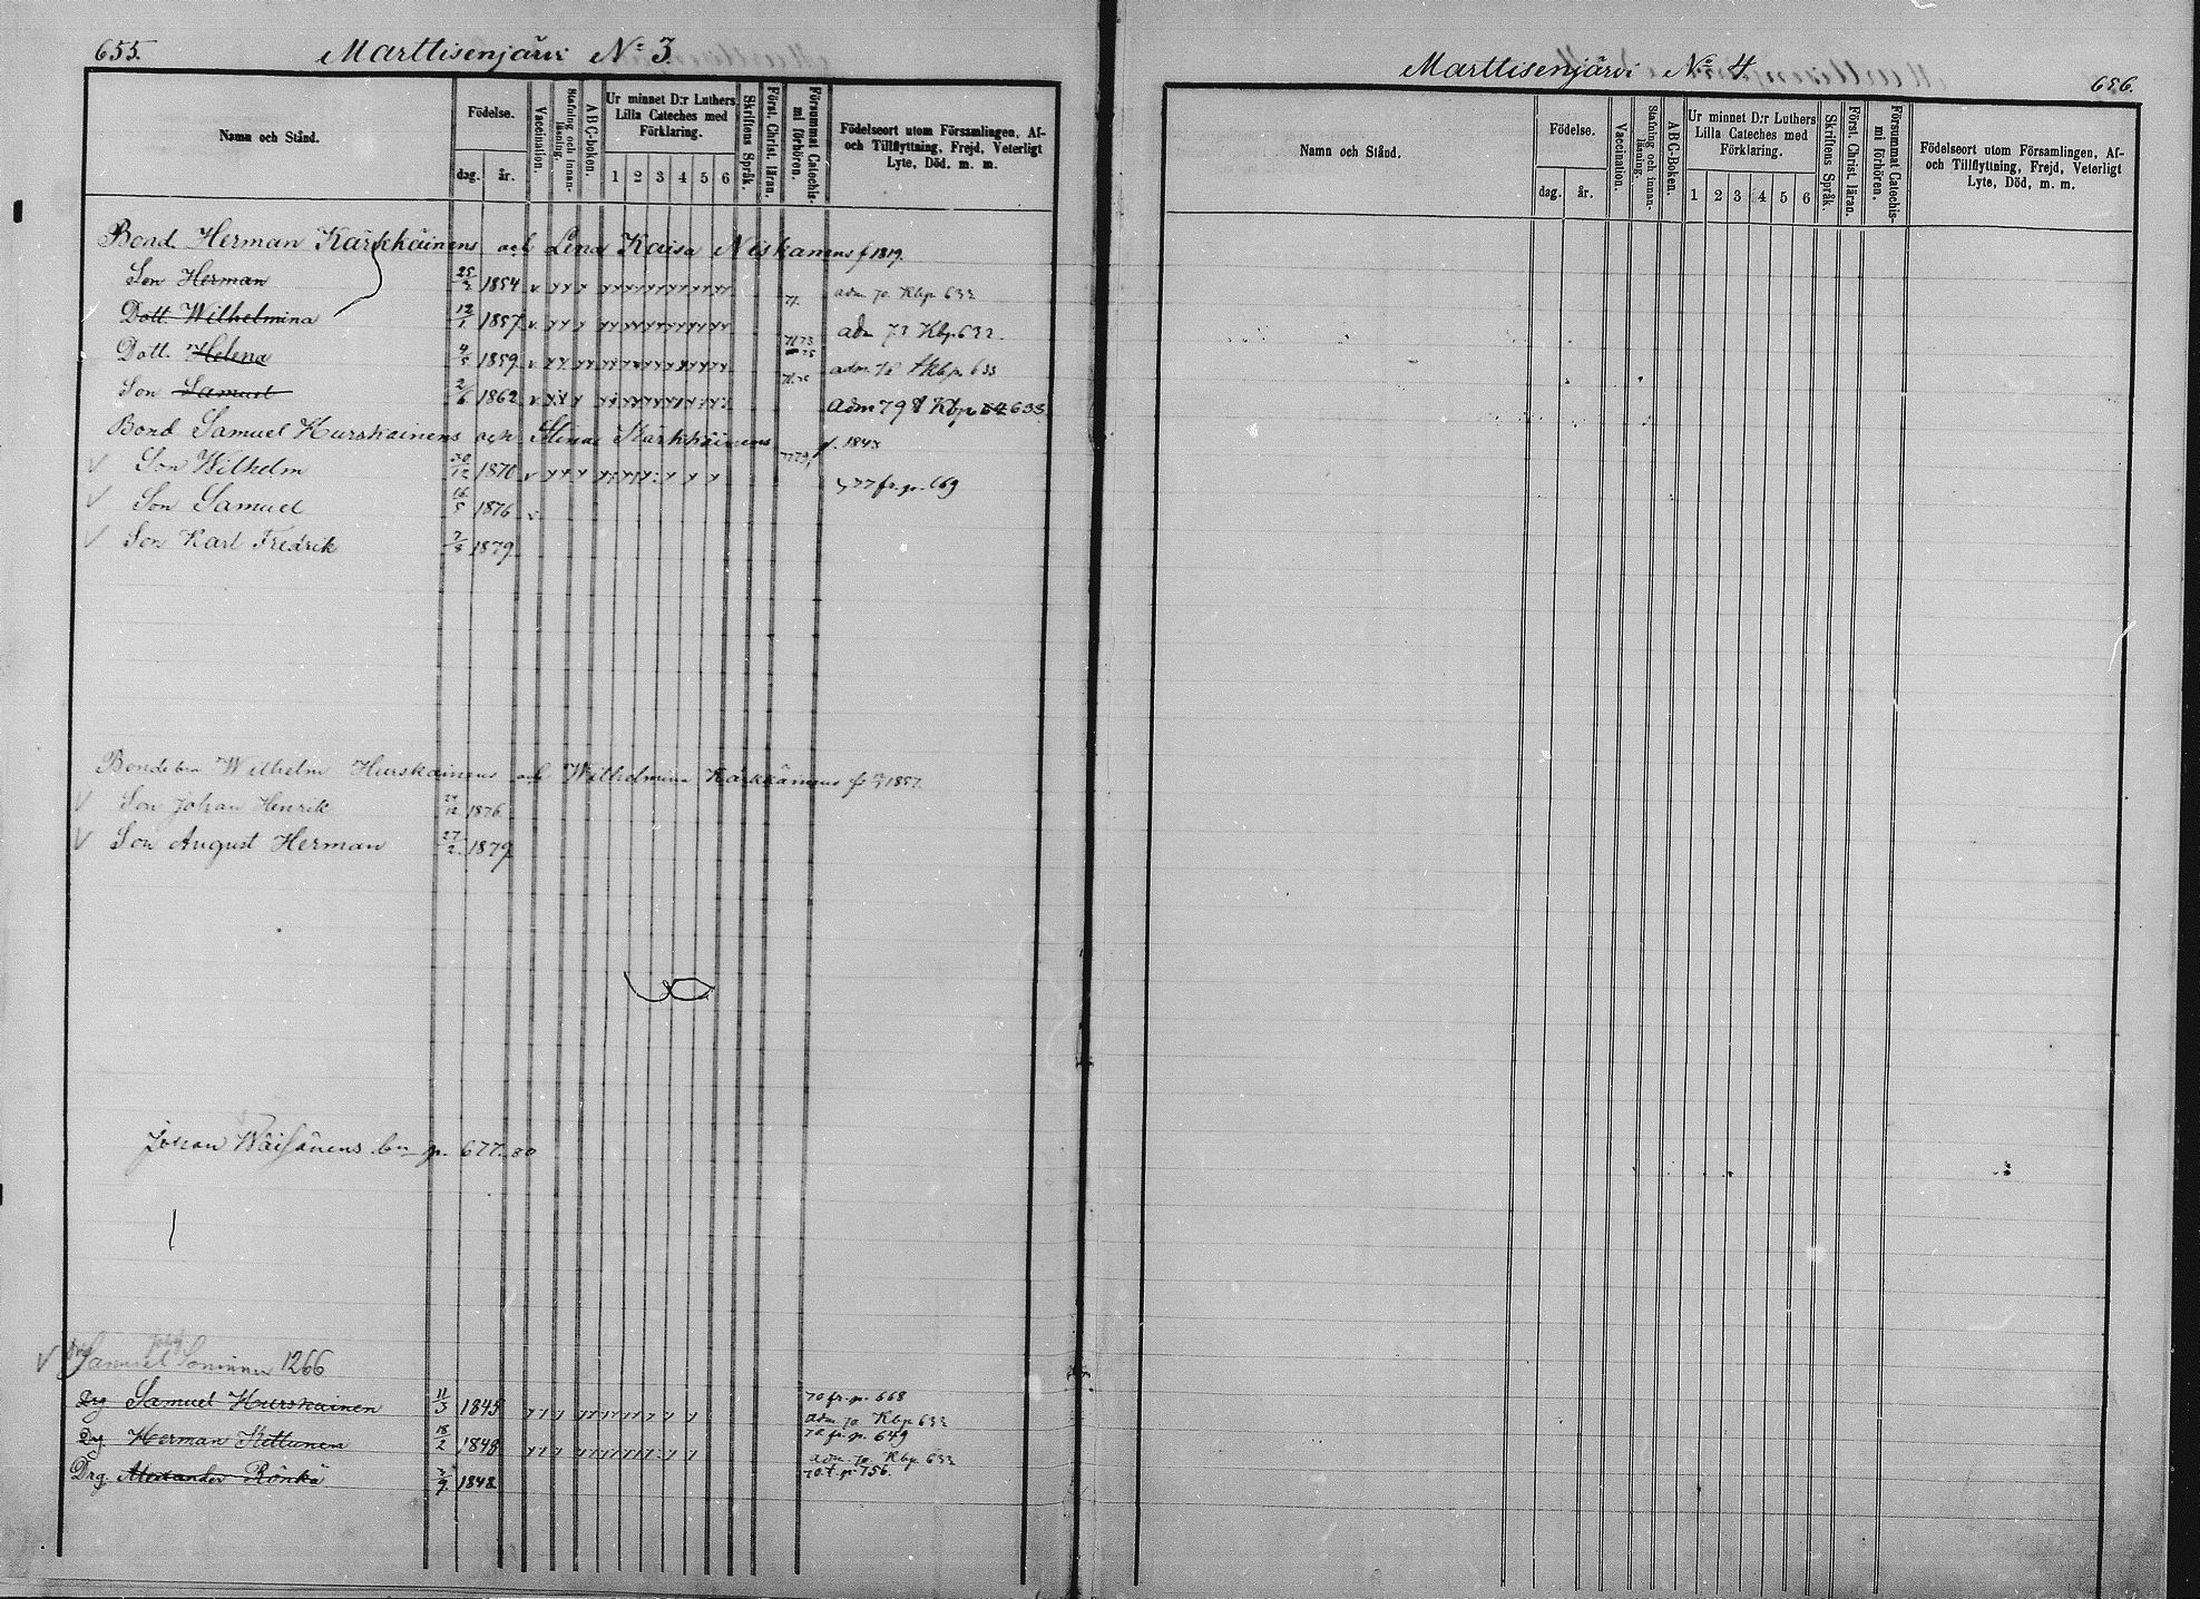 655. Marttisenjärvi No 3.
Namn och Stånd.
Födelse.
dag. år.
Vaccination.
Stafning och innan-läsning.
A B C-boken.
Ur minnet D:r Luthers
Lilla Cateches med
Förklaring.
1 2 3 4 5 6
Skriftens Språk.
Först. Christ. läran.
Försummat Catechis-mi förhören.
Födelseort utom Församlingen, Af-
och Tillflyttning, Frejd, Veterligt
Lyte, Död. m. m.
Bond. Herman Kärkkäinens och Lena Kaisa Niskanens f 1819.
Son Herman 25/3 1854 v adm. 70. Kbp 632
Dott. Wilhelmina 12/1 1857 v. adm 73 Kbp 632.
Dott. Helena 4/5 1859 v adm. 76 Kbp. 633
Son Samuel 2/6 1862 v adm 79 Kbp 633
Bond Samuel Hurskainens och Stinas Kärkkäinens f. 1843
V Son Wilhelm 20/12 1870 v 77 fr. p. 669
V Son Samuel 16/5 1876 v
V Son Karl Fredrik 7/3 1879
Wilhelm Hurskainens och Wilhelmina Kärkkäinens 1857.
V Son Johan Henrik 24/12 1876
V Son August Herman 27/2 1879
Johan Wäisänens p. 677. 80
V Samuel 1266
Drg Samuel Hurskainen 11/3 1845 70 fr. p. 668
adm 70 Kbp 632
Dg. Herman Kettunen 18/2 1848 70 fr. p. 649
adm. 70 Kbp 633
Drg. Alexander Rönkä 3/9 1848 70. t. p. 756.
Marttisenjärvi No 4 656.
Namn och Stånd.
Födelse.
dag. år.
Vaccination.
Stafning och innan-läsning.
A B C-Boken.
Ur minnet D:r Luthers
Lilla Cateches med
Förklaring.
1 2 3 4 5 6
Skriftens Språk.
Först. Christ. läran.
Försummat Catechis-mi förhören.
Födelseort utom Församlingen, Af-
och Tillflyttning, Frejd, Veterligt
Lyte, Död, m. m.